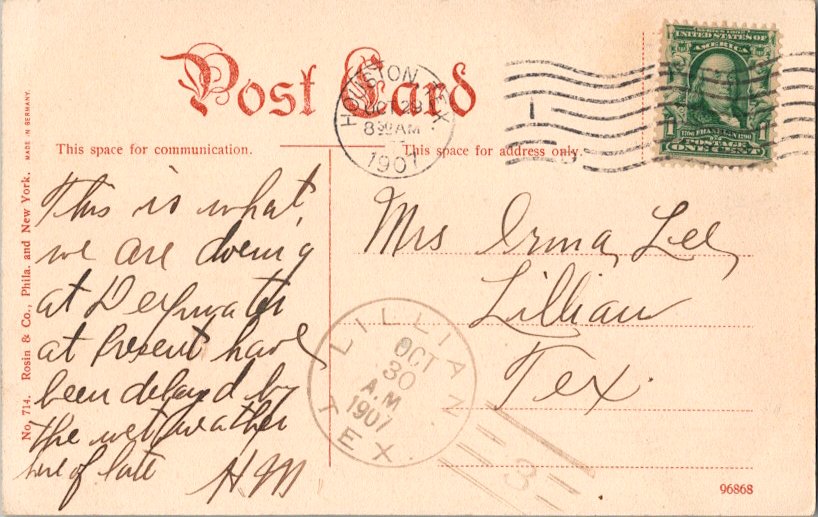 Post Card
HOUSTON, TEX.
OCT 29
8 30 AM
1907
UNITED STATES OF
AMERICA
1
1
FRANKLIN
POSTAGE
ONE CENT
This space for communication.
This space for address only.
This is what
we are doeing
at Deepwater
at Present have
been delayed by
the wet weather
here of late
HM
Mrs Orma Lee,
Lillian
Tex.
LILLIAN
OCT
30
A.M.
1907
TEX.
3
No. 714. Rosin & Co., Phila. and New York. MADE IN GERMANY.
96868